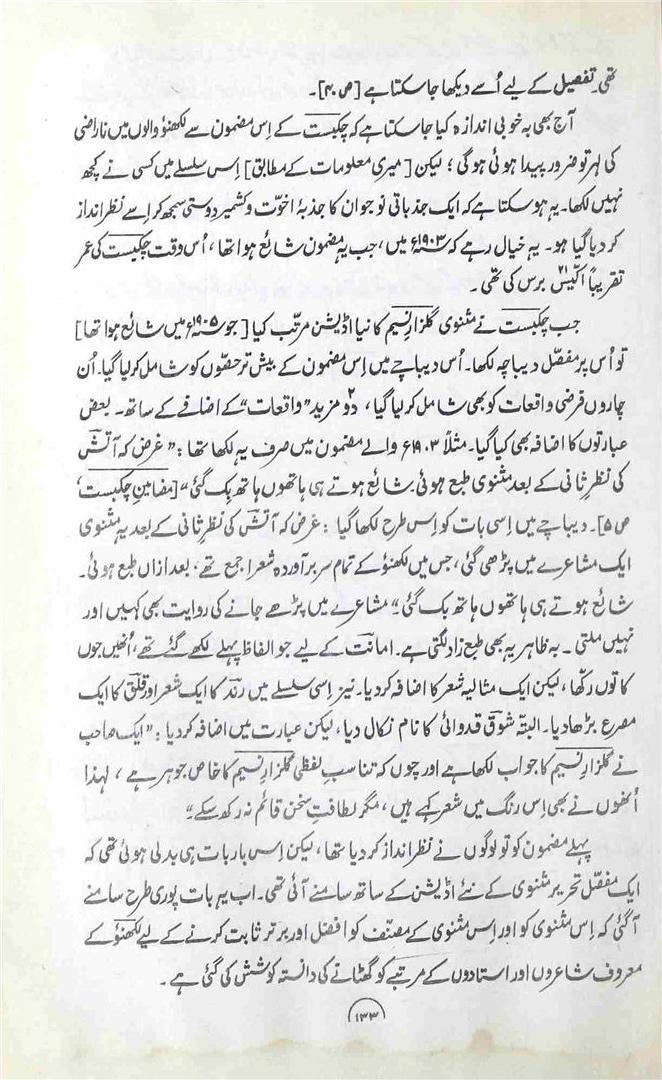 تھی۔ تفصیل کے لیے اُسے دیکھا جاسکتا ہے [ص ۴۰]۔
آج بھی بہ خوبی اندازہ کیا جاسکتا ہے کہ چکبست کے اِس مضمون سے لکھنؤ والوں میں ناراضی
کی لہر تو ضرور پیدا ہوئی ہوگی ؛ لیکن [میری معلومات کے مطابق] اِس سلسلے میں کسی نے کچھ
نہیں لکھا۔ یہ ہوسکتا ہے کہ ایک جذباتی نوجوان کا جذبۂ اخوّت و کشمیر دوستی سمجھ کر اِسے نظر انداز
کردیا گیا ہو۔ یہ خیال رہے کہ ۱۹۰۳ء میں، جب یہ مضمون شائع ہوا تھا، اُس وقت چکبست کی عمر
تقریباً اکیّس ۲۱ برس کی تھی۔
جب چکبست نے مثنوی گلزارِ نسیم کا نیا اڈیشن مرتّب کیا [جو ۱۹۰۵ء میں شائع ہوا تھا]
تو اُس پر مفصّل دیباچہ لکھا۔ اُس دیباچے میں اِس مضمون کے بیش تر حصّوں کو شامل کرلیا گیا۔ اُن
چاروں فرضی واقعات کو بھی شامل کرلیا گیا، دو ۲ مزید "واقعات" کے اضافے کے ساتھ۔ بعض
عبارتوں کا اضافہ بھی کیا گیا۔ مثلاً ۱۹۰۳ء والے مضمون میں صرف یہ لکھا تھا : "غرض کہ آتش
کی نظرِ ثانی کے بعد مثنوی طبع ہوئی۔ شائع ہوتے ہی ہاتھوں ہاتھ بِک گئی" [مضامینِ چکبست،
ص ۵]۔ دیباچے میں اِسی بات کو اِس طرح لکھا گیا : غرض کہ آتش کی نظرِ ثانی کے بعد یہ مثنوی
ایک مشاعرے میں پڑھی گئی، جس میں لکھنؤ کے تمام سربرآوردہ شعرا جمع تھے، بعد ازاں طبع ہوئی۔
شائع ہوتے ہی ہاتھوں ہاتھ بک گئی"۔ مشاعرے میں پڑھے جانے کی روایت بھی کہیں اور
نہیں ملتی۔ بہ ظاہر یہ بھی طبع زاد لگتی ہے۔ امانت کے لیے جو الفاظ پہلے لکھے گئے تھے، اُنھیں جوں
کا توں رکھّا، لیکن ایک مثالیہ شعر کا اضافہ کردیا۔ نیز اِسی سلسلے میں رند کا ایک شعر اور قلق کا ایک
مصرع بڑھا دیا۔ البتہ شوق قدوائی کا نام نکال دیا، لیکن عبارت میں اضافہ کردیا : "ایک صاحب
نے گلزارِ نسیم کا جواب لکھا ہے اور چوں کہ تناسبِ لفظی گلزارِ نسیم کا خاص جوہر ہے، لہٰذا
اُنھوں نے بھی اِس رنگ میں شعر کہے ہیں، مگر لطافتِ سخن قائم نہ رکھ سکے"۔
پہلے مضمون کو تو لوگوں نے نظر انداز کردیا تھا، لیکن اس بار بات ہی بدلی ہوئی تھی کہ
ایک مفصّل تحریر مثنوی کے نئے اڈیشن کے ساتھ سامنے آئی تھی۔ اب یہ بات پوری طرح سامنے
آگئی کہ اِس مثنوی کو اور اِس مثنوی کے مصنّف کو افضل اور برتر ثابت کرنے کے لیے لکھنؤ کے
معروف شاعروں اور استادوں کے مرتبے کو گھٹانے کی دانستہ کوشش کی گئی ہے۔
۱۳۳